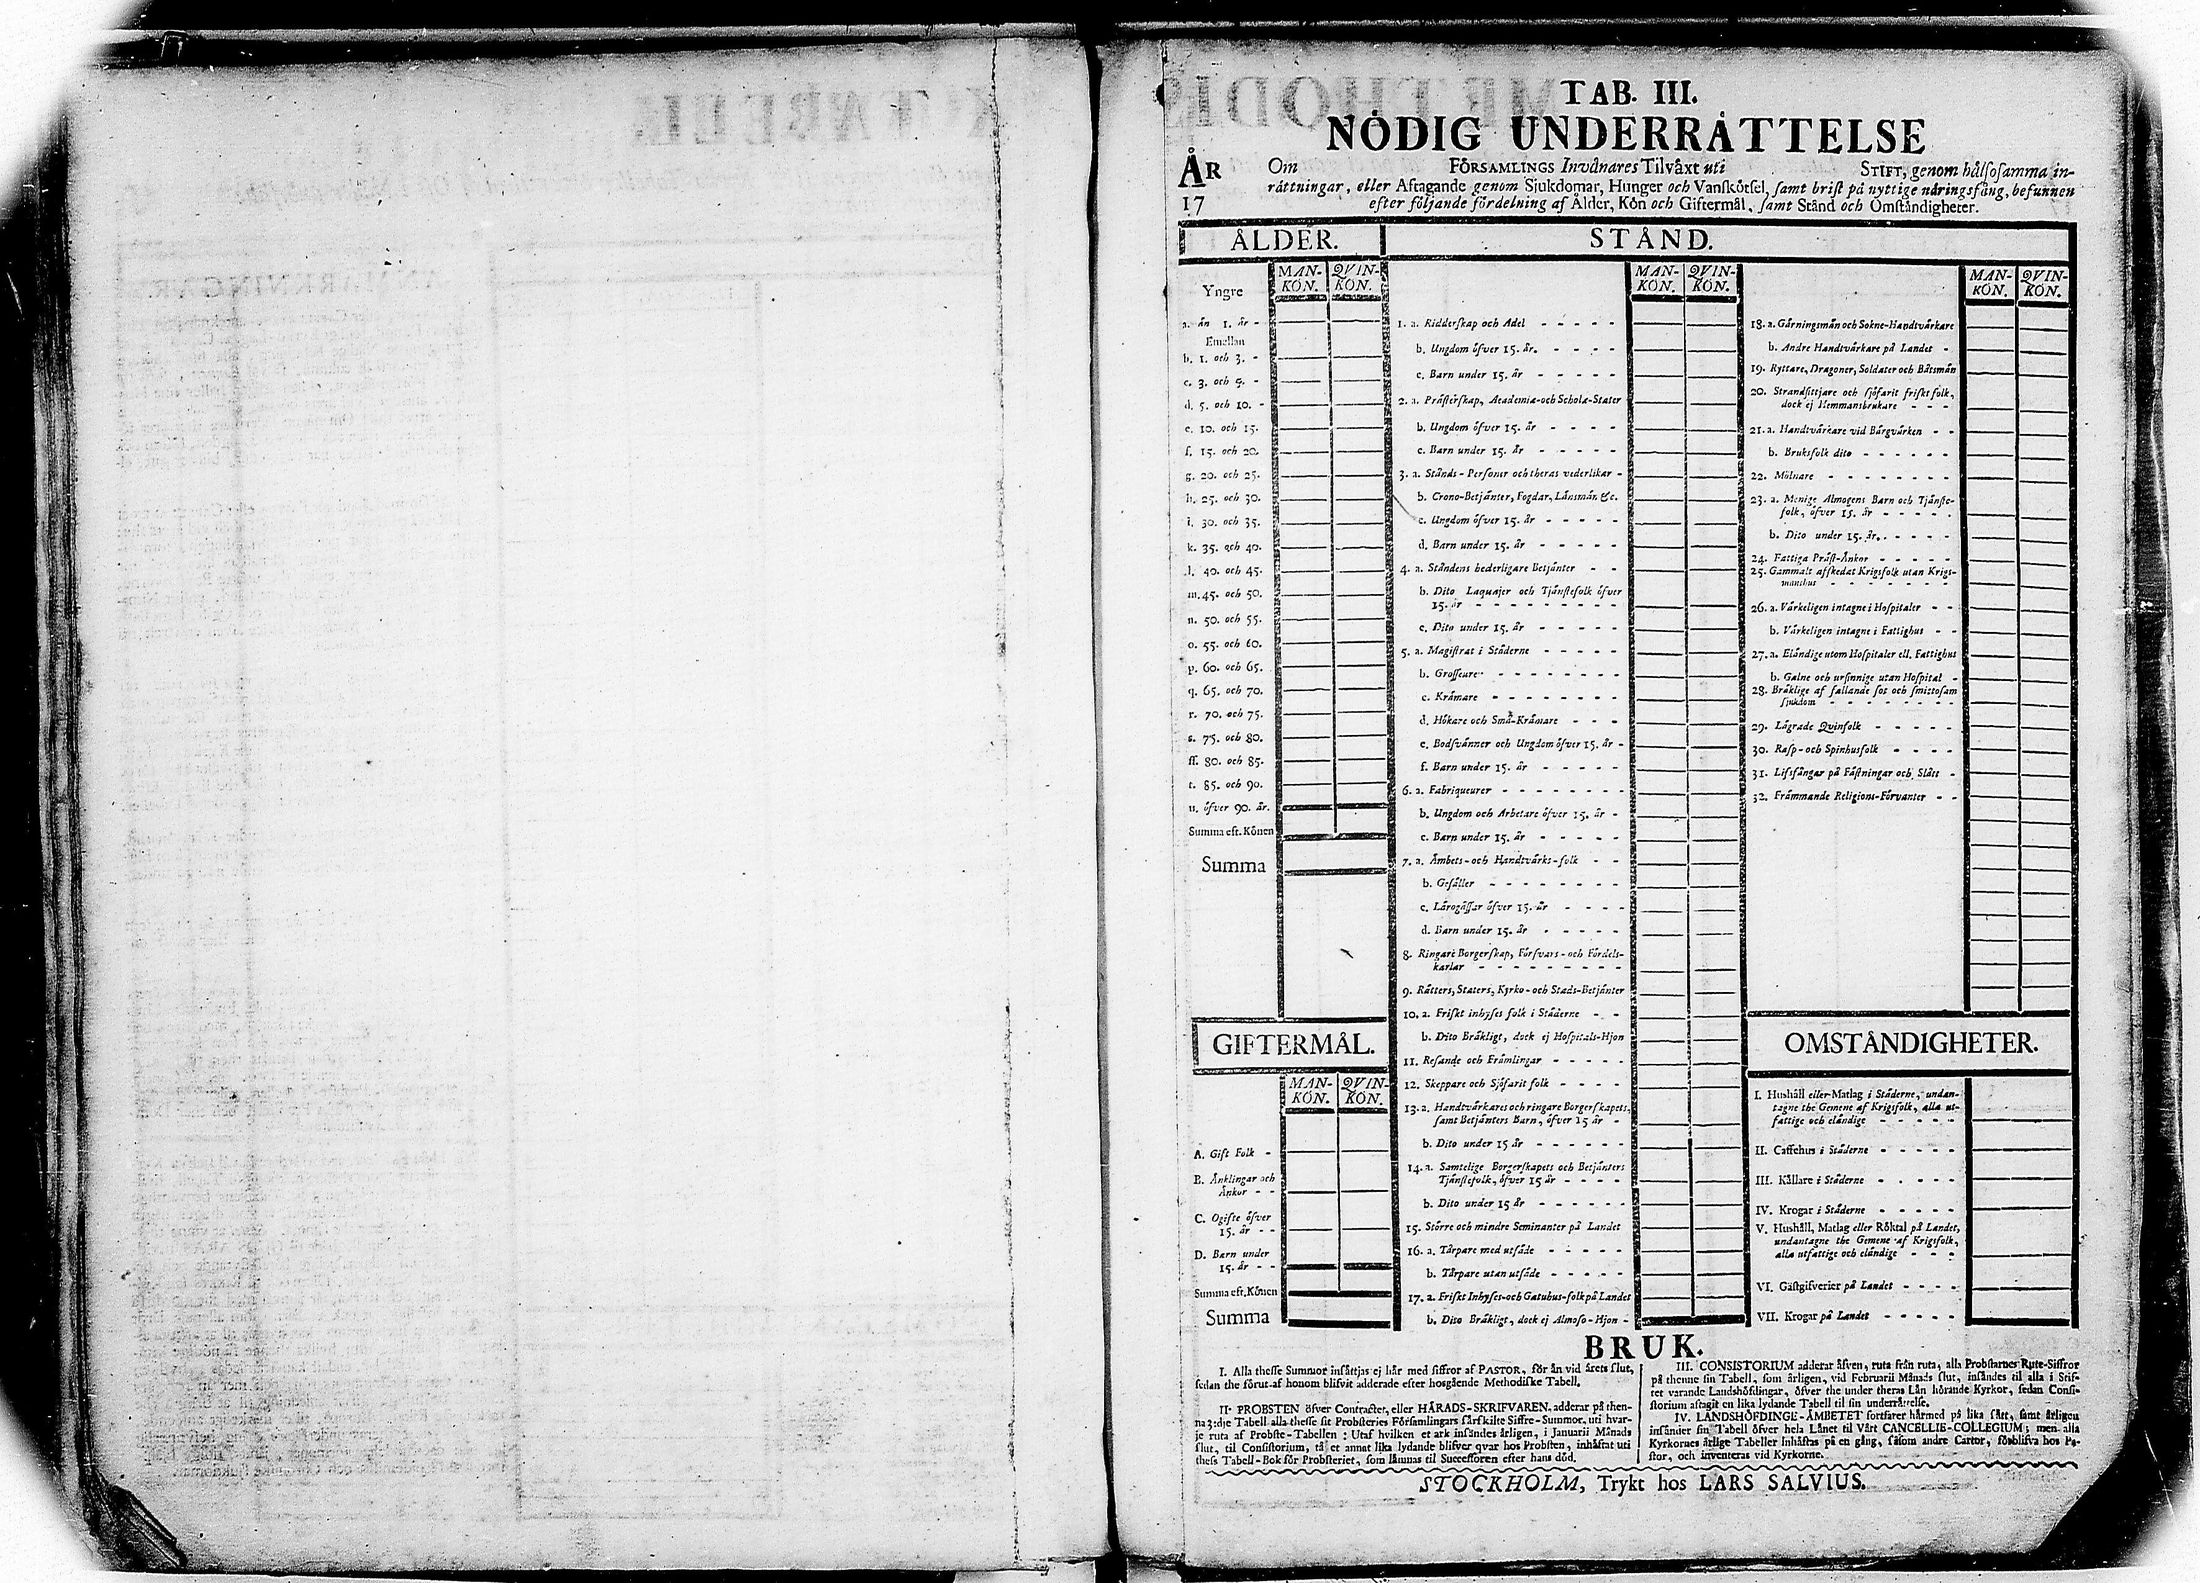 TAB. III.
NÖDIG UNDERRÅTTELSE
ÅR
17
Om FÖRSAMLINGS Invånares Tilvåxt uti STIFT, genom hålsosamma in-
råttningar, eller Aftagande genom Sjukdomar, Hunger och Vanskötsel, samt brist på nyttige nåringsfång, befunnen
efter följande fördelning af Ålder, Kön och Giftermål, samt Stånd och Omståndigheter.
ÅLDER.
MAN-KÖN. QVIN-KÖN.
Yngre
a. ån 1. år -
Emellan
b. 1. och 3. -
c. 3. och 5. -
d. 5. och 10. -
e. 10. och 15.
f. 15. och 20.
g. 20. och 25.
h. 25. och 30.
i. 30. och 35.
k. 35. och 40.
l. 40. och 45.
m. 45. och 50.
n. 50. och 55.
o. 55. och 60.
p. 60. och 65.
q. 65. och 70.
r. 70. och 75.
s. 75. och 80.
ff. 80. och 85.
t. 85. och 90.
u. öfver 90. år.
Summa eft. Könen
Summa
GIFTERMÅL.
MAN-KÖN. QVIN-KÖN.
A. Gift Folk -
B. Ånklingar och
Ånkor - -
C. Ogifte öfver
15. år - -
D. Barn under
15. år - -
Summa eft. Könen
Summa
STÅND.
MAN-KÖN. QVIN-KÖN.
1. a. Ridderskap och Adel - - - - -
b. Ungdom öfver 15. år. - - - -
c. Barn under 15. år - - - -
2. a. Pråsterskap, Academiæ-och Scholæ-Stater
b. Ungdom öfver 15. år - - - -
c. Barn under 15. år - - - -
3. a. Stånds-Personer och theras vederlikar -
b. Crono-Betjånter, Fogdar, Lånsmån &c.
c. Ungdom öfver 15. år - - - - -
d. Barn under 15. år - - - - -
4. a. Ståndens hederligare Betjånter - -
b. Dito Laquajer och Tjånstefolk öfver
15. år - - - - - - - -
c. Dito under 15. år - - - - -
5. a. Magistrat i Ståderne - - - - -
b. Grosseurer - - - - - - -
c. Kråmare - - - - - - - -
d. Hökare och Små-Kråmare - - -
e. Bodsvånner och Ungdom öfver 15. år -
f. Barn under 15. år - - - - -
6. a. Fabriqueurer - - - - - - -
b. Ungdom och Arbetare öfver 15. år -
c. Barn under 15. år - - - - -
7. a. Åmbets-och Handtvårks-folk - -
b. Gesåller - - - - - - - -
c. Lårogåssar öfver 15. år - - - -
d. Barn under 15. år - - - - -
8. Ringare Borgerskap, Försvars-och Fördels-
karlar - - - - - - - - -
9. Råtters, Staters, Kyrko-och Stads-Betjånter
10. a. Friskt inhyses folk i Ståderne - -
b. Dito Bråkligt, dock ej Hospitals-Hjon
11. Resande och Fråmlingar - - - -
12. Skeppare och Sjöfarit folk - - - -
13. a. Handtvårkares och ringare Borgerskapets,
samt Betjånters Barn, öfver 15 år -
b. Dito under 15 år - - - - -
14. a. Samtelige Borgerskapets och Betjånters
Tjånstefolk, öfver 15 år - - - -
b. Dito under 15 år - - - - -
15. Större och mindre Seminanter på Landet
16. a. Tårpare med utsåde - - - - -
b. Tårpare utan utsåde - - - - -
17. a. Friskt Inhyses-och Gatuhus-folk på Landet
b. Dito Bråkligt, dock ej Almoso-Hjon -
MAN-KÖN. QVIN-KÖN.
18. a. Gårningsmån och Sokne-Handtvårkare
b. Andre Handtvårkare på Landet -
19. Ryttare, Dragoner, Soldater och Båtsmån
20. Strandsittjare och sjöfarit friskt folk,
dock ej Hemmansbrukare - - -
21. a. Handtvårkare vid Bårgvårken - -
b. Bruksfolk dito - - - - - -
22. Mölnare - - - - - - - -
23. a. Menige Almogens Barn och Tjånste-
folk, öfver 15. år - - - - -
b. Dito under 15. år. - - - - -
24. Fattiga Pråst-Ånkor - - - - -
25. Gammalt afskedat Krigsfolk utan Krigs-
manshus - - - - - - - -
26. a. Vårkeligen intagne i Hospitaler - -
b. Vårkeligen intagne i Fattighus - -
27. a. Elåndige utom Hospitaler ell. Fattighus
b. Galne och ursinnige utan Hospital -
28. Bråklige af fallande sot och smittosam
sjukdom - - - - - - - -
29. Lågrade Qvinfolk - - - - -
30. Rasp-och Spinhusfolk - - - - -
31. Lifsfångar på Fåstningar och Slått -
32. Fråmmande Religions-Förvanter - -
OMSTÅNDIGHETER.
I. Hushåll eller Matlag i Ståderne, undan-
tagne the Gemene af Krigsfolk, alla ut-
fattige och elåndige - - - - -
II. Caffehus i Ståderne - - - - -
III. Kållare i Ståderne - - - - -
IV. Krogar i Ståderne - - - - -
V. Hushåll, Matlag eller Röktal på Landet,
undantagne the Gemene af Krigsfolk,
alla utfattige och elåndige - - -
VI. Gåstgifverier på Landet - - - -
VII. Krogar på Landet - - - - -
BRUK.
I. Alla thesse Summor insåttjas ej hår med siffror af PASTOR, för ån vid årets slut,
sedan the förut af honom blifvit adderade efter hosgående Methodiske Tabell.
II. PROBSTEN öfver Contracter, eller HÅRADS-SKRIFVAREN, adderar på then-
na 3:dje Tabell alla thesse sit Probsteries Församlingars sårskilte Siffre-Summor, uti hvar-
je ruta af Probste-Tabellen: Utaf hvilken et ark insåndes årligen, i Januarii Månads
slut, til Consistorium, tå et annat lika lydande blifver qvar hos Probsten, inhåftat uti
thess Tabell-Bok för Probsteriet, som låmnas til Successoren efter hans död.
III. CONSISTORIUM adderar åfven, ruta från ruta, alla Probstarnes Rute-Siffror
på thenne sin Tabell, som årligen, vid Februarii Månads slut, insåndes til alla i Stif-
tet varande Landshöfdingar, öfver the under theras Lån hörande Kyrkor, sedan Consi-
storium aftagit en lika lydande Tabell til sin underråttelse.
IV. LANDSHÖFDINGE-ÅMBETET fortfarer hårmed på lika sått, samt årligen
insånder sin Tabell öfver hela Lånet til Vårt CANCELLIE-COLLEGIUM; men alla
Kyrkornes årlige Tabeller inhåftas på en gång, såsom andre Cartor, förblifva hos Pa-
stor, och inventeras vid Kyrkorne.
STOCKHOLM, Trykt hos LARS SALVIUS.